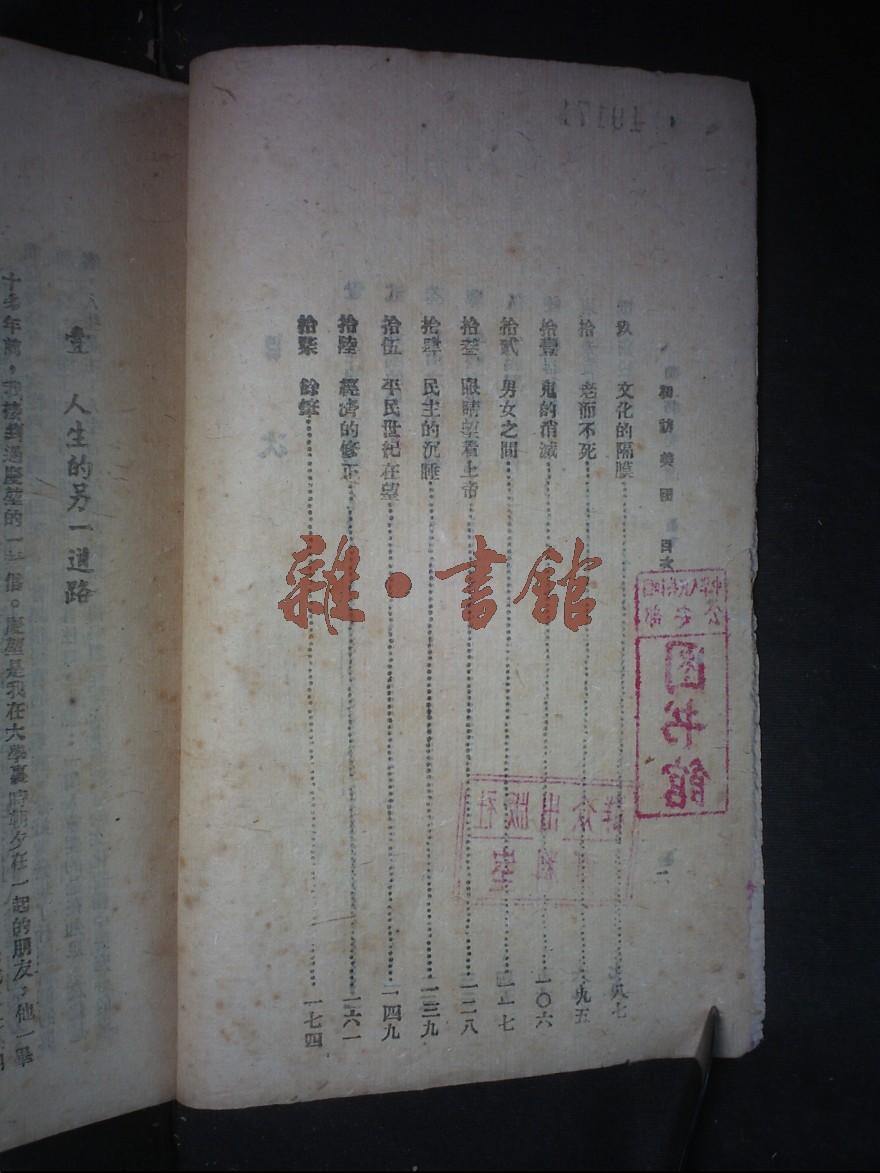 初訪美國 目次 二
玖 文化的隔膜 八七
拾 老而不死 九五
拾壹 鬼的消滅 一〇六
拾貳 男女之間 一一七
拾叁 眼睛望着上帝 一二八
拾肆 民主的沉睡 一三九
拾伍 平民世紀在望 一四九
拾陸 經濟的修正 一六一
拾柒 餘筆 一七四
雜·書館
图书馆
出版社
壹 人生的另一道路
十多年前，我接到過慶堃的一封信。慶堃是我在大學裏時朝夕在一起的朋友，他一畢